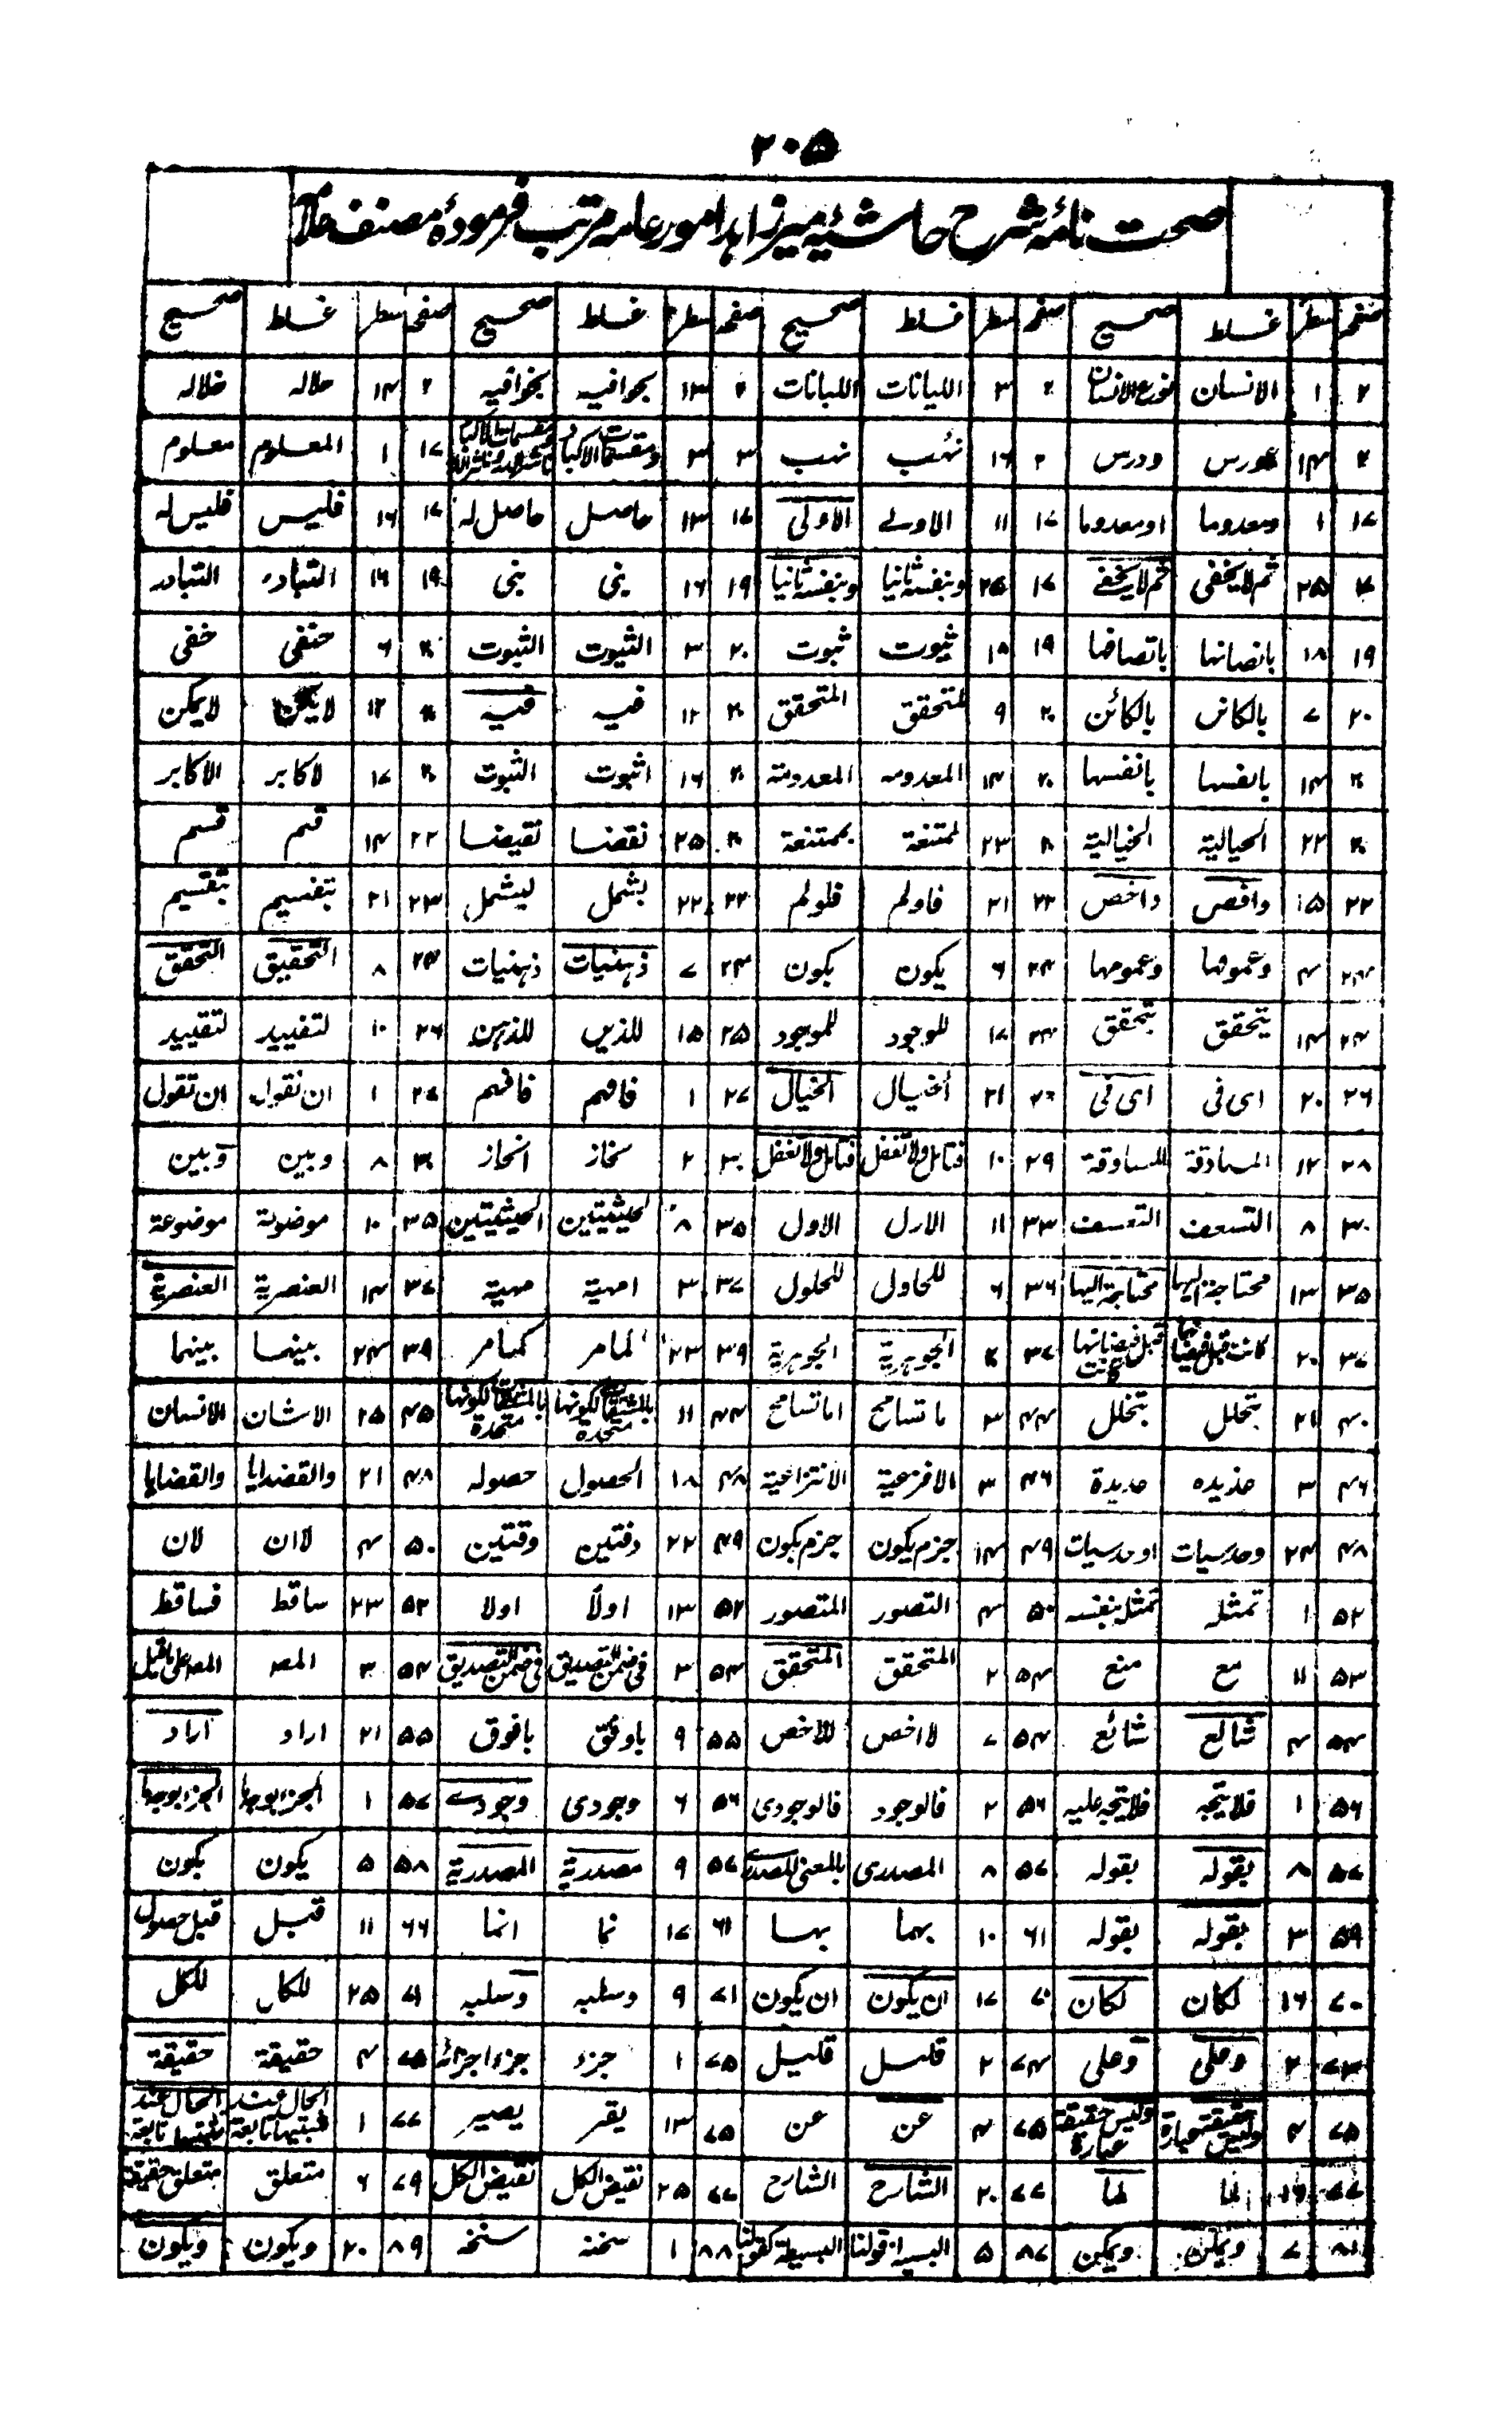 ۲۰۵
صحت نامۂ شرح حاشیۂ میر زاہد امور عامہ مرتب فرمودۂ مصنف علام
صفحہ سطر غلط صحیح صفحہ سطر غلط صحیح صفحہ سطر غلط صحیح صفحہ سطر غلط صحیح
۲ ۱ الانسان نوع الانسان ۲ ۳ اللیانات اللبانات ۲ ۱۳ بحوافیہ بخوافیہ ۲ ۱۴ حلالہ خلالہ
۲ ۱۴ عورس ودرس ۲ ۱۶ نئہب نہب ۳ ۳ ومقسمات الاکبا ۱۷ ۱ المعلوم معلوم
۱۷ ۱ ومعدوما اومعدوما ۱۷ ۱۱ الاولے الاولیٰ ۱۷ ۱۳ حاصل حاصل لہ ۱۷ ۱۶ فلیس فلیس لہ
۱۷ ۲۵ ثم لایخفی ثم لایخفے ۱۷ ۲۵ وبنفسہ ثانیا وبنفسہ ثانیا ۱۹ ۱۶ ینی بنی ۱۹ ۱۶ التبادر التبادر
۱۹ ۱۸ بانصانہا باتصافہا ۱۹ ۱۸ ثیوت ثبوت ۲۰ ۳ الثیوت الثبوت ۲۰ ۶ حتفی خفی
۲۰ ۷ بالکاٮں بالکائن ۲۰ ۹ لمتحقق المتحقق ۲۰ ۱۲ فیہ فیہ ۲۰ ۱۲ لایکن لایمکن
۲۰ ۱۴ بالفسہا بانفسہا ۲۰ ۱۴ المعدومہ المعدومة ۲۰ ۱۶ اثبوت الثبوت ۲۰ ۱۷ لاکابر الاکابر
۲۰ ۲۲ الحیالیة الخیالیة ۲۰ ۲۳ لمتنعة بممتنعة ۲۰ ۲۵ نقضا نقیضا ۲۲ ۱۴ قتم قسم
۲۲ ۱۵ واقص واخص ۲۲ ۲۱ فاولم فلولم ۲۲ ۲۲ بشمل لیشمل ۲۳ ۲۱ بتفسیم بتقسیم
۲۴ ۴ وعموہا وعمومہا ۲۴ ۶ یکون بکون ۲۴ ۷ ذہنیات ذہنیات ۲۴ ۸ التحقیق التحقق
۲۴ ۱۴ یتحقق بتحقق ۲۴ ۱۷ للوجود للموجود ۲۵ ۱۵ للذین للذہن ۲۶ ۱۰ لتفیید لتقیید
۲۶ ۲۰ ای فی ای فی ۲۶ ۲۱ أخیال الخیال ۲۷ ۱ فاہم فافہم ۲۷ ۱ ان نقول ان تقول
۲۸ ۱۲ المسادقة للمساوقة ۲۹ ۱۰ فتامل ولاتغفل فتامل ولاتغفل ۳۰ ۲ نحاز انحاز ۳۰ ۸ وبین وبین
۳۰ ۸ التسعف التعسف ۳۳ ۱۱ الارل الاول ۳۵ ۸ لحیثیتین الحیثیتین ۳۵ ۱۰ موضوتة موضوعة
۳۵ ۱۳ محتاجة الیہا محتاجة الیہا ۳۶ ۶ للحاول للحلول ۳۷ ۳ امہیة مہیة ۳۷ ۱۴ العنصریة العنصریة
۳۷ ۲۰ کانت قبل فیضانہا قبل فیضانہا کانت ۳۷ الجوہریة الجوہریة ۳۹ ۲۳ لمامر کمامر ۳۹ ۲۴ بینہما بینہا
۴۰ ۲۱ بتحلل بتخلل ۴۴ ۳ ماتسامح اماتسامح ۴۴ ۱۱ ۴۵ ۲۵ الاشان الانسان
۴۶ ۳ حذیدہ حدیدة ۴۶ ۳ الافزعیة الانتزاعیة ۴۸ ۱۸ الحصول حصولہ ۴۸ ۲۱ والقضدایا والقضایا
۴۸ ۲۴ وحدسیات اوحدسیات ۴۹ ۱۴ جزم یکون جزم بکون ۴۹ ۲۲ دفتین وقتین ۵۰ ۴ لاان لان
۵۲ ۱ تمثلہ تمثل بنفسہ ۵۰ ۴ التصور المتصور ۵۲ ۱۳ اولاً اولا ۵۲ ۲۳ ساقط فساقط
۵۳ ۱۱ مع منع ۵۴ ۲ المتحقق المتحقق ۵۴ ۳ فی ضمن التصدیق فی ضمن التصدیق ۵۴ ۳ المص المص علی ماقیل
۵۴ ۴ شالع شائع ۵۴ ۷ لااخص للاخص ۵۵ ۹ باوفق بافوق ۵۵ ۲۱ اراد اراد
۵۶ ۱ فلایتجہ فلایتجہ علیہ ۵۶ ۲ فالوجود فالوجودی ۵۶ ۶ وجودی وجودے ۵۷ ۱ الجزء بوجہا الجزء بوجہا
۵۷ ۸ بقولہ بقولہ ۵۷ ۸ المصدری بالمعنی المصدرے ۵۷ ۹ مصدریة المصدریة ۵۸ ۵ یکون بکون
۵۹ ۳ بقولہ بقولہ ۶۱ ۱۰ بہما بہا ۶۱ ۱۷ نما انما ۶۶ ۱۱ قبل قبل حصول
۷۰ ۱۶ لکان لکان ۷۰ ۱۷ ان یکون ان یکون ۷۱ ۹ وسلبہ وسلبہ ۷۱ ۲۵ للکال للکل
۷۳ ۲ وعلی وعلی ۷۴ ۲ قلیل قلیل ۷۵ ۱ جزء جزء اجزائہ ۷۵ ۴ حقیقة حقیقة
۷۵ ۴ ولیس حقیقة عبارة ولیس حقیقة عبارة ۷۵ ۴ عن عن ۷۵ ۱۳ یقر یصیر ۷۷ ۱ الحال عند تابعة الحال عند تابعة
۷۷ ۱۶ لما لما ۷۷ ۲۰ الشارح الشارح ۷۷ ۲۵ نقیض الکل نقیض الکل ۷۹ ۶ متعلق متعلق حقیقة
۸۱ ۷ ویمکن ویمکن ۸۷ ۵ قولنا البسیطة کقولنا ۸۸ ۱ سخنہ سنخہ ۸۹ ۲۰ ویکون ویکون